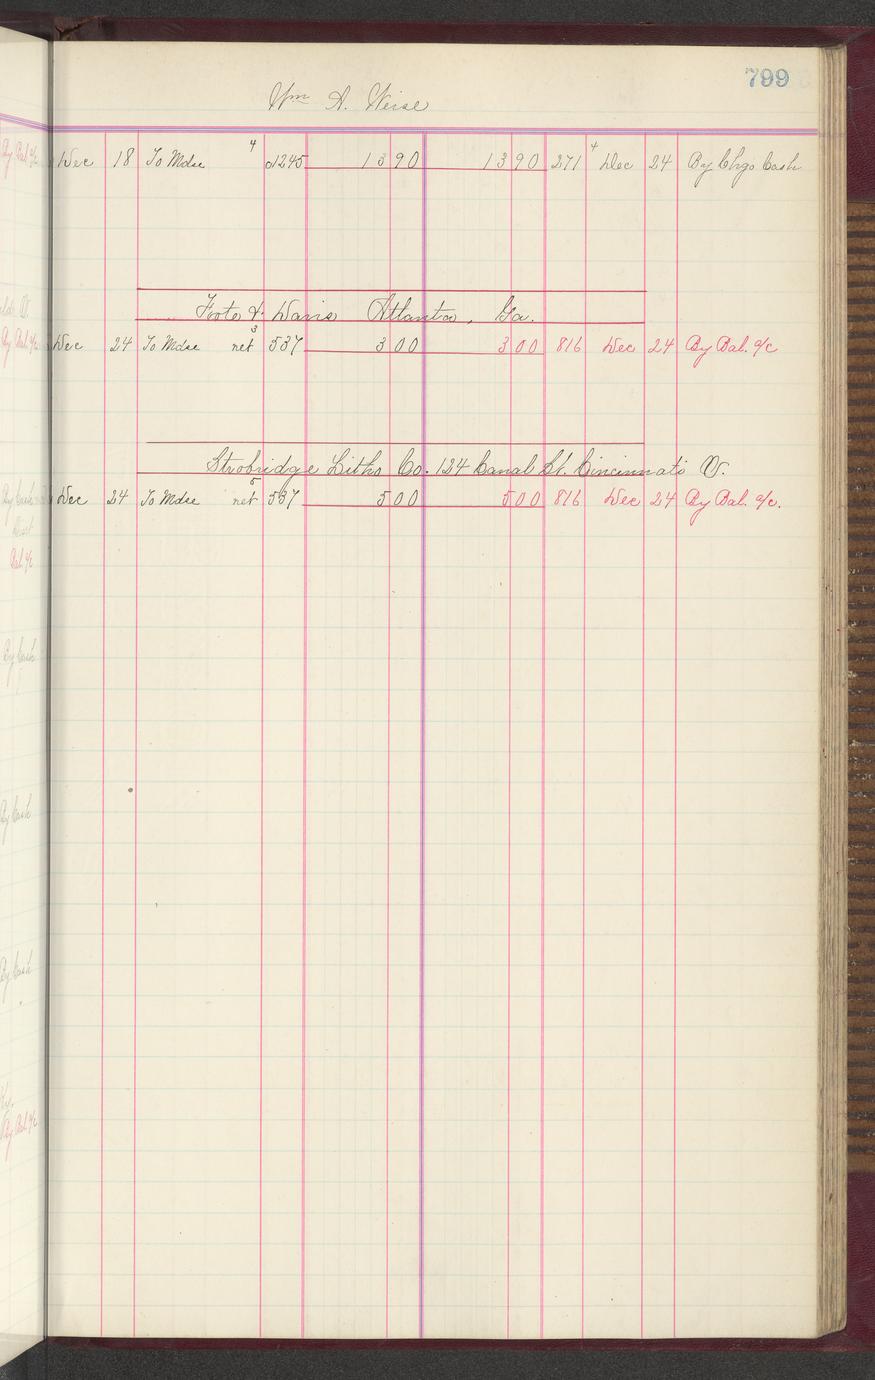 799
Wm A. Weise
Dec 18 To Mdse 4 d1245 13 90 13 90 271 4 Dec 24 By Chgo Cash
Foote & Davis Atlanta, Ga.
Dec 24 To Mdse net 3 537 3 00 3 00 816 Dec 24 By Bal. a/c
Strobridge Litho Co. 124 Canal St. Cincinnati O.
Dec 24 To Mdse net 5 537 5 00 5 00 816 Dec 24 By Bal. a/c.
By Bal a/c
By Bal a/c
By Cash
Bal. a/c
By Cash
By Cash
By Cash
Ky.
By Bal a/c